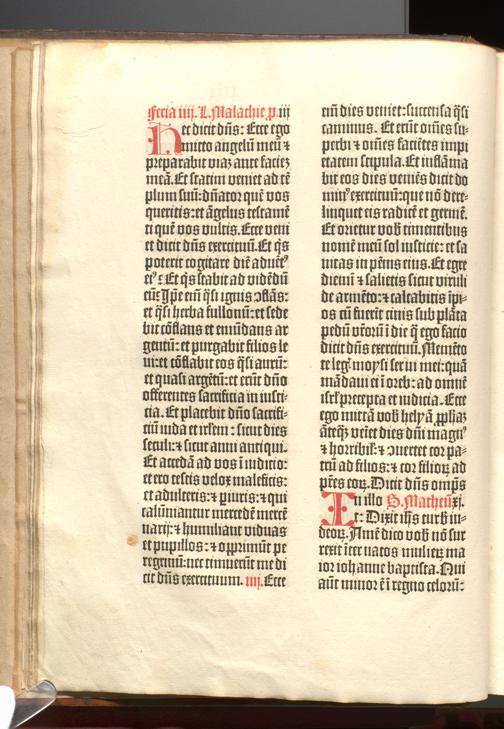 Feria iiij. L. Malachie ꝑ. iij
Hec dicit dñs: Ecce ego
mitto angelū meū ⁊
preparabit viaȝ ante facieȝ
meā. Et statim veniet ad tē
plum suū: dñator quē vos
queritis: et āgelus testamē
ti quē vos vultis. Ecce veni
et dicit dñs exercituū. Et q̄s
poterit cogitare diē aduēt⁹
ei⁹: Et q̄s stabit ad vidēdū
eū: Ip̄e em̄ q̄si ignis ꝯflās:
et q̄si herba fullonū: et sede
bit cōflans et emūdans ar
gentū: et purgabit filios le
ui: et cōflabit eos q̄si aurū:
et quasi argētū: et erūt dño
offerentes sacrificia in iusti
cia. Et placebit dño sacrifi-
ciū iuda et irlem: sicut dies
seculi: ⁊ sicut anni antiqui.
Et accedā ad vos ī iudicio:
et ero testis velox maleficis:
et adulteris: ⁊ ꝑiuris: ⁊ qui
calūniantur mercedē merce
narij: ⁊ humiliant viduas
et pupillos: ⁊ opprimūt pe
regrinū: nec timuerūt me di
cit dñs exercituum. iiij. Ecce
em̄ dies veniet: succensa q̄si
caminus. Et erūt om̄es su-
perbi ⁊ om̄es faciētes impi
etatem stipula. Et inflāma
bit eos dies veniēs dicit do
min⁹ exercituū: que nō dere-
linquet eis radicē et germē.
Et orietur vob̄ timentibus
nomē meū sol iusticie: et sa
nitas in pēnis eius. Et egre
diemī ⁊ salietis sicut vituli
de armēto: ⁊ calcabitis īpi-
os cū fuerīt cinis sub plāta
pedū vr̄orū ī die q̄ ego facio
dicit dñs exercituū. Memēto
te leg; moysi serui mei: quā
mādaui ei ī oreb: ad omnē
isrl̄ precepta et iudicia. Ecce
ego mittā vob̄ helyā ꝓphā
āteq̄ veīet dies dñi magn⁹
⁊ horribil': ⁊ ꝯuertet cor pa-
trū ad filios: ⁊ cor filioꝝ ad
pr̄es eoꝝ. Dicit dñs om̄ps
In illo S. Matheū xi.
t: Dixit ih̄s turb̄ iu-
deoꝝ. Amē dico vob̄ nō sur
rexit īter natos mulieꝝ ma
ior iohanne baptista. Qui
aūt minor ē ī regno celorū: